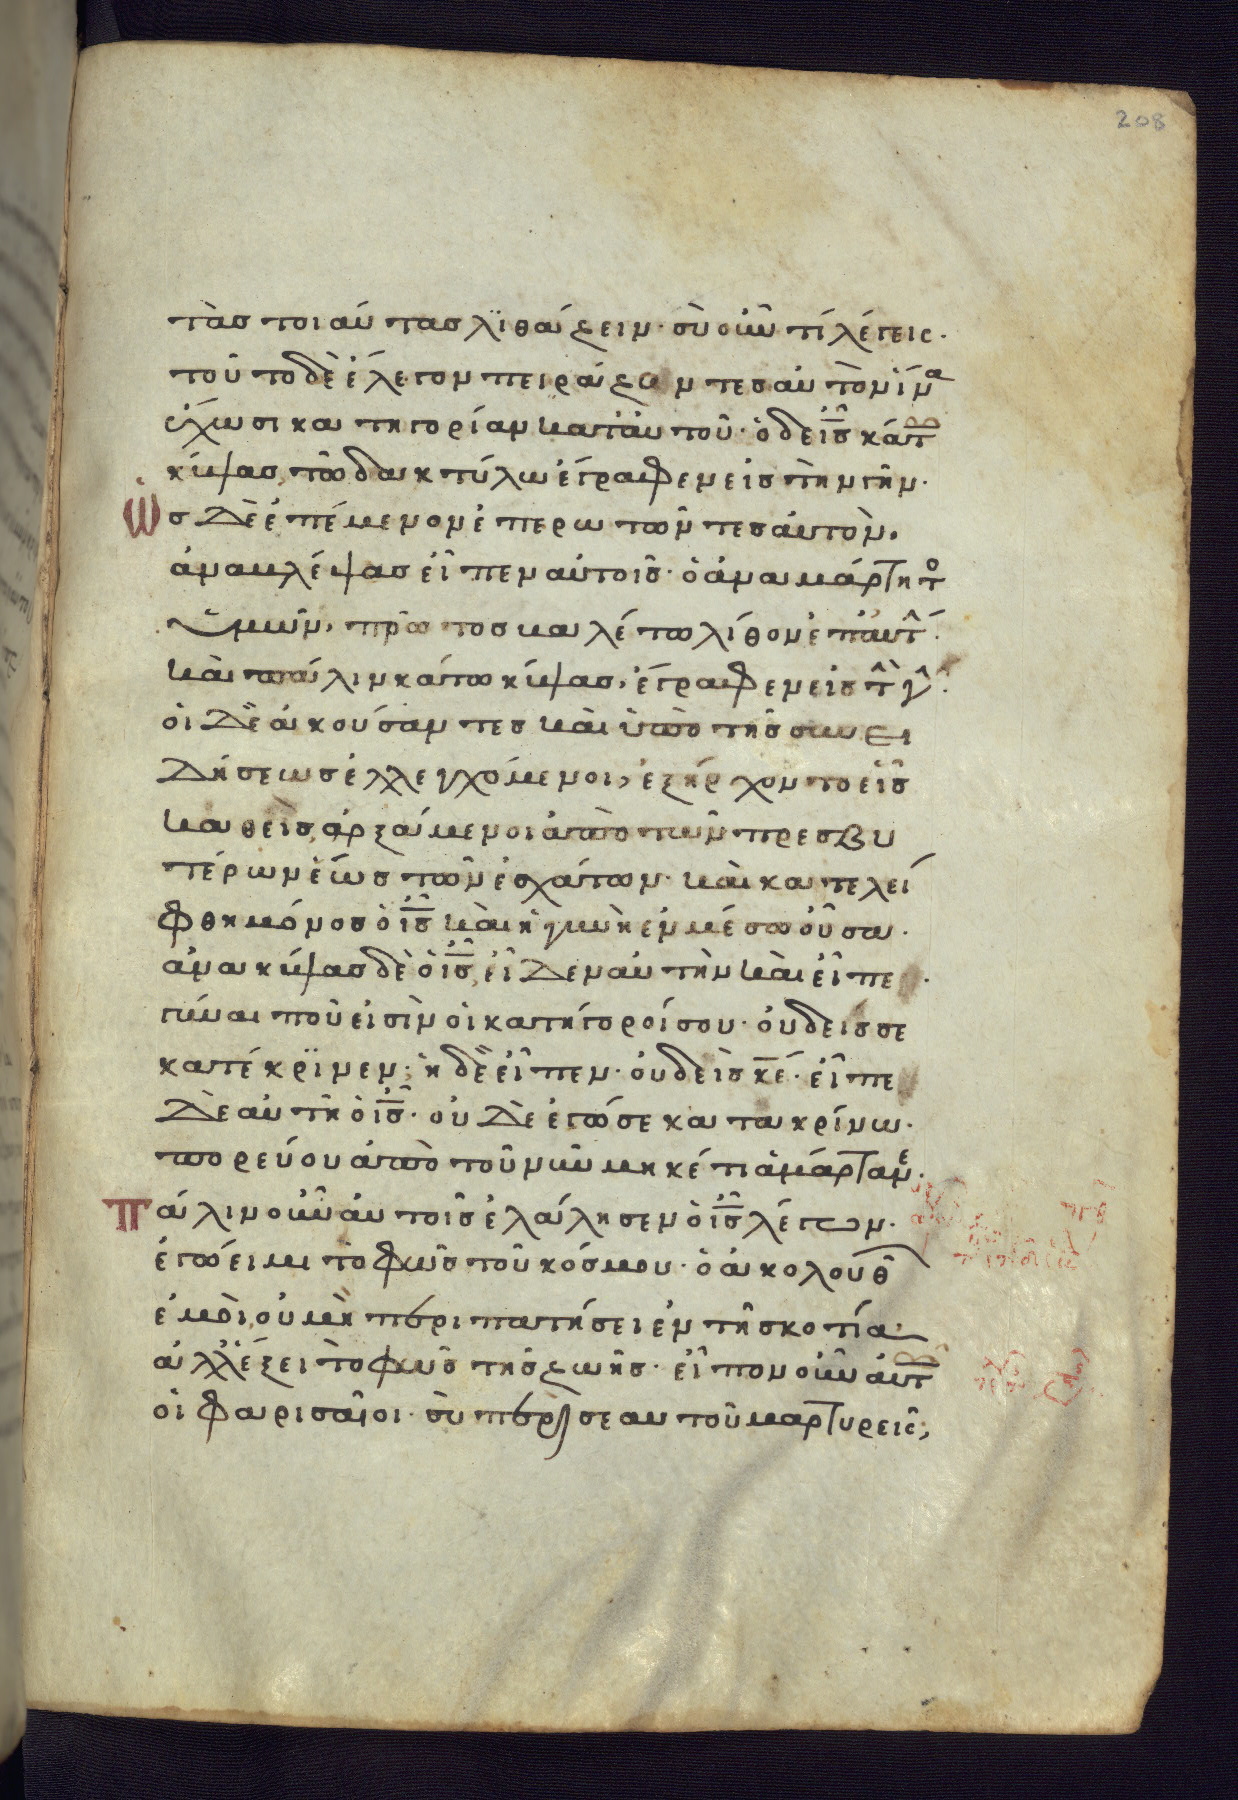 208
τὰς τοιαύτας λϊθάζειν· σὺ οὖν τί λέγεις·
τοῦτο δὲ ἔλεγον πειράζοντες αὐτὸν ἵνα
ἔχωσι κατηγορίαν κατ' αὐτοῦ· ὁ δε ις κάτω
κύψας, τῶ δακτύλω ἔγραφεν εἰς τὴν γῆν·
Ὡς δὲ ἐπέμενον ἐπερωτῶντες αὐτὸν,
ἀνακλέψας εἶπεν αὐτοῖς· ὁ ἀναμάρτητο
ὑμῶν, πρῶτος βαλέτω λίθον ἐπ' αὐτ·
καὶ πάλιν κάτω κύψας, ἔγραφεν εἰς τὴν γῆν·
οἱ δὲ ἀκούσαντες καὶ ὑπὸ τῆς συνει
δήσεως ἐλλεγχόμενοι, ἐξήρχοντο εἷς
καθεὶς ἀρξάμενοι ἀπὸ τῶν πρεσβυ
τέρων ἕως τῶν ἐσχάτων· καὶ κατελεί
φθη μόνος ὁ ις καὶ ἡ γυνὴ ἐν μέσω οὖσα·
ἀνακύψας δὲ ὁ ις, εἶδεν αὐτὴν καὶ εἶπε·
γύναι ποῦ εἰσὶν οἱ κατήγοροί σου· οὐδεις σε
κατέκρϊνεν; ἡ δὲ εἶπεν· οὐδεὶς κε· εἶπε
δὲ αὐτῆ ὁ ις· οὐδὲ ἐγώ σε κατακρίνω·
πορεύου ἀπὸ τοῦ νῦν μηκέτι ἁμάρτανε·
Πάλιν οὖν αὐτοῖς ἐλάλησεν ὁ ις λέγων·
ἐγώ εἰμι τὸ φῶς τοῦ κόσμου· ὁ ἀκολουθῶν
ἐμοὶ, οὐ μὴ περιπατήσει ἐν τῆ σκοτία·
ἀλλ' ἕξει τὸ φῶς τῆς ζωῆς· εἶπον οὖν αὐτῶ
οἱ φαρισαῖοι· σὺ περὶ σεαυτοῦ μαρτυρεῖς;